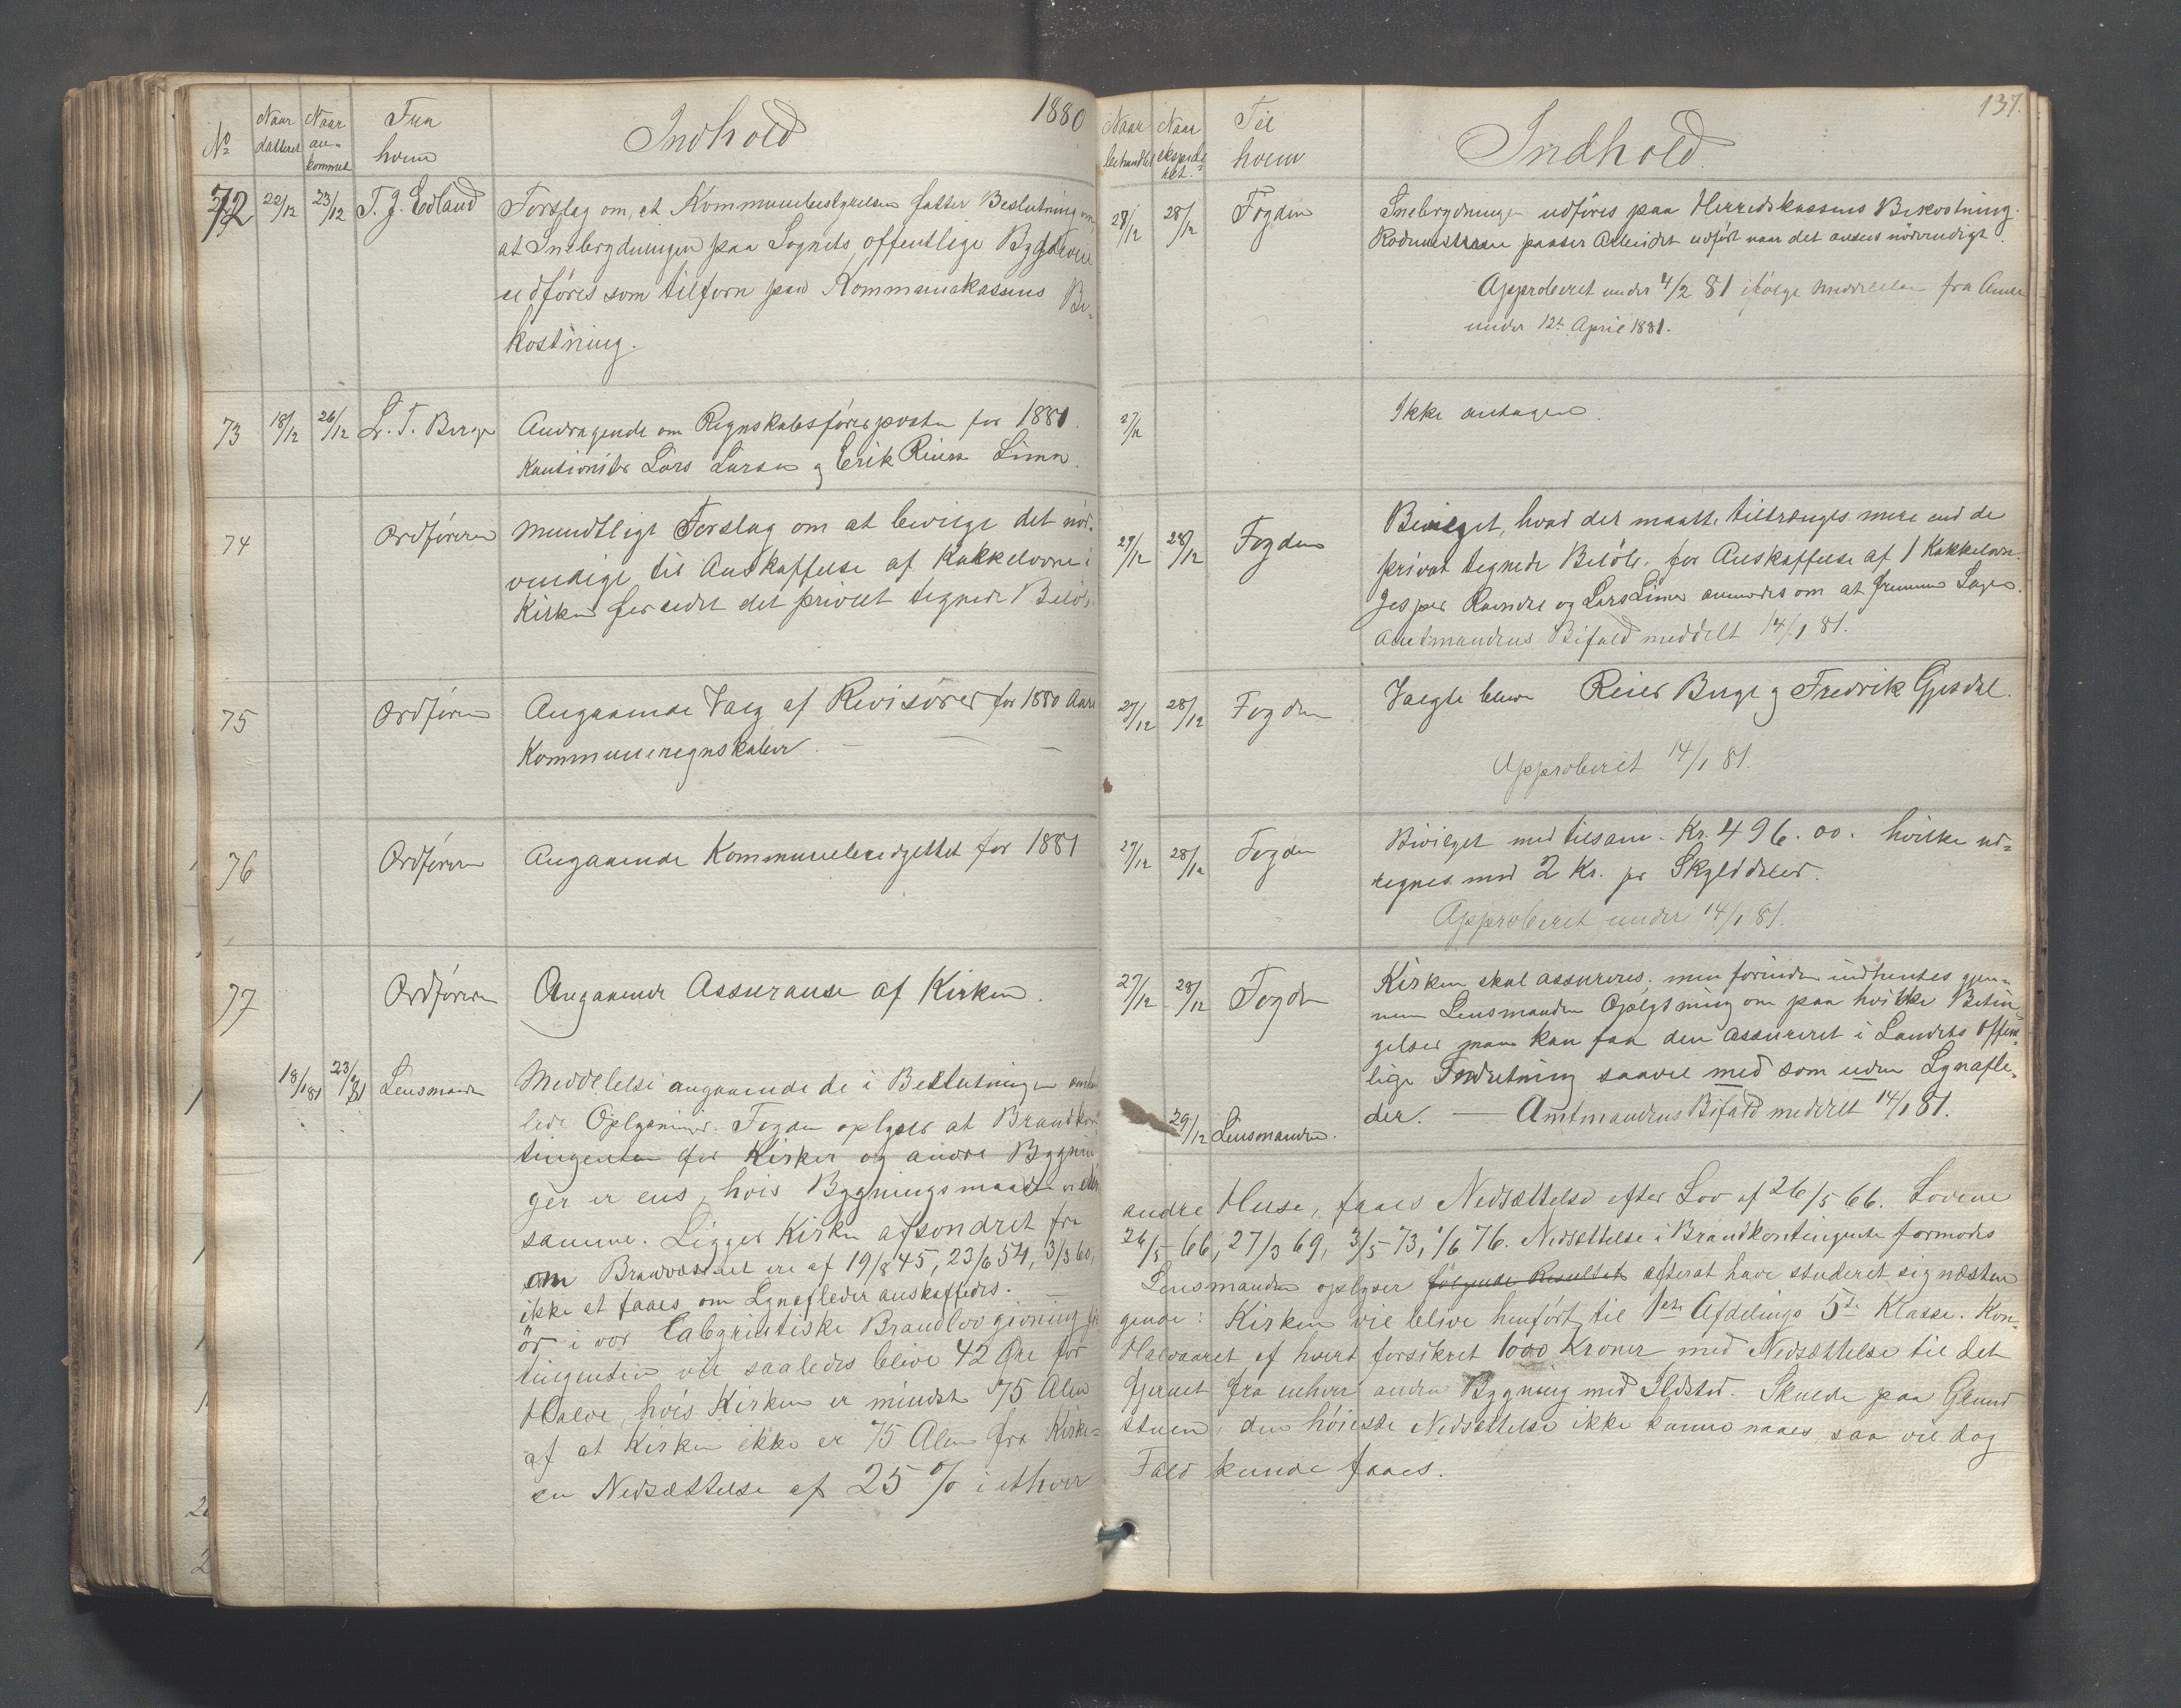 1880
No
Naar datteret
Naar ankommet
Fra hvem
Indhold
72 22/12 23/12 T. J. Edland
Forslag om, at Kommunebestyrelsen fatter Beslutning om,
at Snebrydningen paa Sognets offentlige Bygdeveie
udføres som tilforn paa Kommunekassens Be-
kostning.
73 18/12 26/12 L. T. Berge
Andragende om Regnskabsførerposten for 1881.
Kautionister Lars Larsen og Erik Reiers Limn.
74 Ordføreren
Mundtligt Forslag om at bevilge det nød-
vendige til Anskaffelse af Kakkelovne i
Kirken forudet det privat tegnede Beløb.
75 Ordføreren
Angaaende Valg af Revisører for 1880 Aars
Kommuneregnskaber. —
76 Ordføreren
Angaaende Kommunebudgettet for 1881
77 Ordføreren
Angaaende Assuranse af Kirken.
18/1 81 23/1 81 Lensmanden
Meddelelse angaaende de i Beslutningen omhand
lede Oplysninger. Fogden oplyser at Brandkon-
tingenten for Kirker og andre Bygnin-
ger er ens, hvis Bygningsmaaden er den
samme. Ligger Kirken afsondret fra
om Brandvæsenet ere af 19/8 45, 23/6 54, 3/3 60,
ikke at faaes om Lynafleder anskaffedes. —
ør i vor labyrintiske Brandlovgivning føl
tingentin vil saaledes blive 42 Øre for
Halve, hvis Kirken er mindst 75 Alen
af at Kirken ikke er 75 Alen fra Kirke-
en Nedsættelse af 25 % i ethver
137.
Naar behandlet
Naar ekspede-
ret.
Til hvem
Indhold.
28/12 28/12 Fogden
Snebrydningen udføres paa Herredskassens Bekostning.
Rodemesterne passer Arbeidet udført naar det ansees nødvendigt.
Approberet under 4/2 81 ifølge Meddelelse fra Amtet
under 12te April 1881.
27/12
Ikke antagen.
27/12 28/12 Fogden
Bevilget, hvad der maatte tiltrænges mere end de
privat tegnede Beløb, for Anskaffelse af 1 Kakkelovn.
Jesper Ravndal og Lars Limn anmodes om at fremme Sagen.
Amtmandens Bifald meddelt 14/1 81.
27/12 28/12 Fogden
Valgte blev Reier Berge og Fredrik Gjesdal.
Approberet 14/1 81.
27/12 28/12 Fogden
Bevilget med tilsam. Kr. 496.00. hvilke ud-
regnes med 2 Kr. pr Skylddaler.
Approberet under 14/1 81.
27/12 28/12 Fogden
Kirken skal assureres; men forinden indhentes gjen-
nem Lensmanden Oplysning om paa hvilke Betin-
gelser man kan faa den assureret i Landets offent-
lige Indretning saavel med som uden Lynafle-
der. — Amtmandens Bifald meddelt 14/1 81.
29/12 Lensmanden.
andre Huse, faaes Nedsættelse efter Lov af 26/5 66. Lovene
26/5 66, 27/3 69, 3/5 73, 1/6 76. Nedsættelse i Brandkontingente formodes
Lensmanden oplyser følgende Resultat efterat have studeret sig næsten
gende: Kirken vil blive henført til 1ste Afdelings 5te Klasse. Kon-
Halvaaret af hvert forsikret 1000 Kroner med Nedsættelse til det
fjernet fra enhver anden Bygning med Ildsted. Skulde paa Grund
stuen, den høieste Nedsættelse ikke kunne naaes, saa vil dog
Fald kunde faaes.